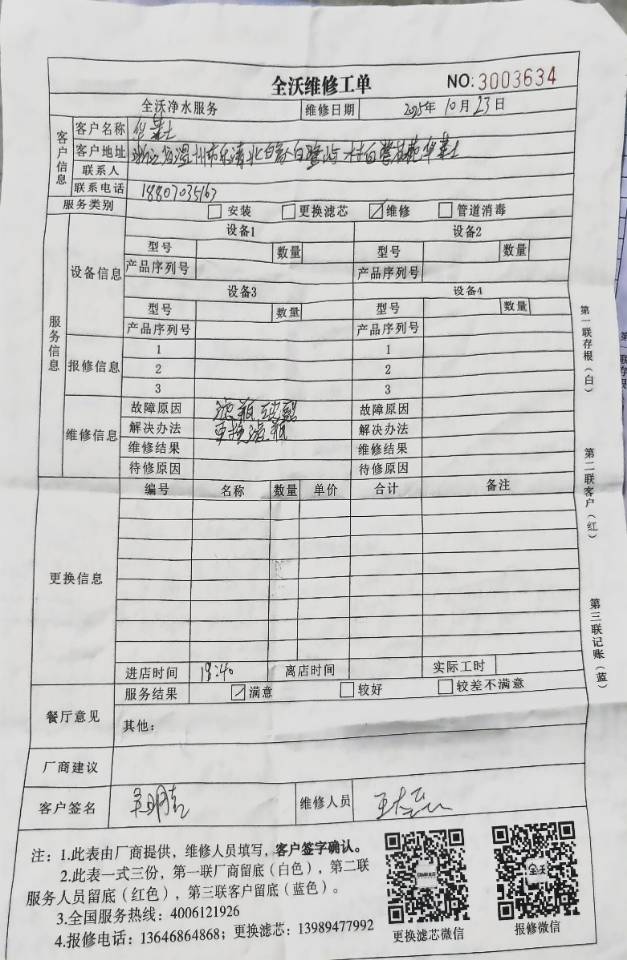 全沃维修工单 NO:3003634
全沃净水服务 维修日期 2025年10月23日
客户信息
客户名称 华莱士
客户地址 浙江省温州市乐清 北白象 白鹭屿村 华莱士
联系人
联系电话 18807035167
服务类别 安装 更换滤芯 维修 管道消毒
服务信息
设备信息
设备1 设备2
型号 数量 型号 数量
产品序列号 产品序列号
设备3 设备4
型号 数量 型号 数量
产品序列号 产品序列号
报修信息
1 1
2 2
3 3
维修信息
故障原因 滤瓶 故障原因
解决办法 更换滤瓶 解决办法
维修结果 维修结果
待修原因 待修原因
更换信息
编号 名称 数量 单价 合计 备注
进店时间 19:40 离店时间 实际工时
餐厅意见
服务结果 满意 较好 较差不满意
其他:
厂商建议
客户签名 维修人员
注: 1.此表由厂商提供,维修人员填写,客户签字确认。
2.此表一式三份,第一联厂商留底(白色),第二联
服务人员留底(红色),第三联客户留底(蓝色)。
3.全国服务热线: 4006121926
4.报修电话: 13646864868; 更换滤芯: 13989477992
更换滤芯微信 报修微信
第一联存根(白)
第二联客户(红)
第三联记账(蓝)